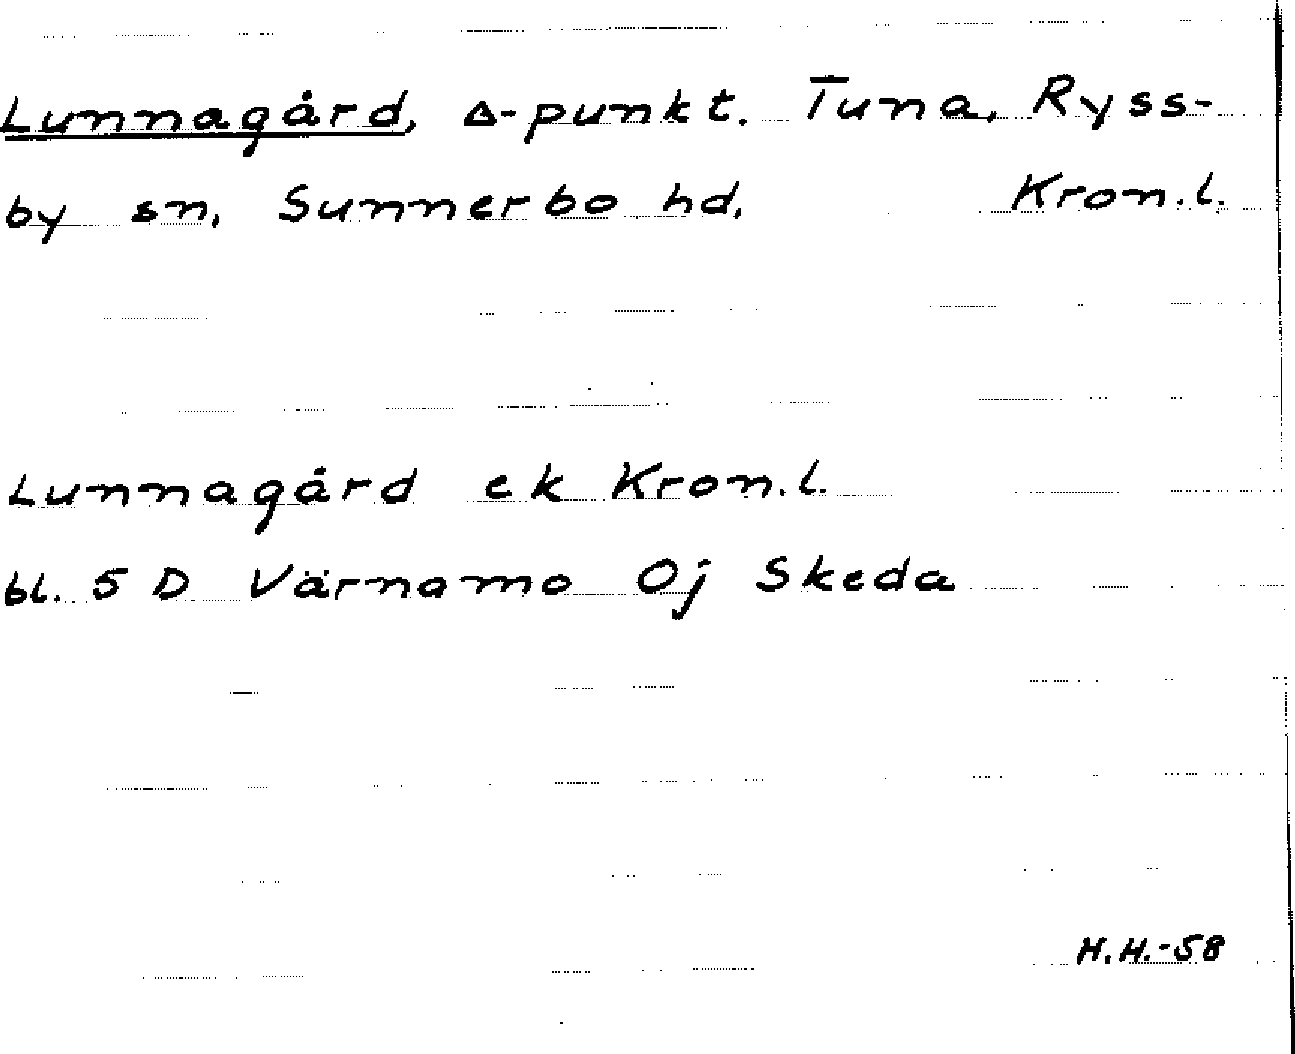 Lunnagård, Δ-punkt. Tuna, Ryss-
by sn, Sunnerbo hd, Kron.l.
Lunnagård ek Kron.l.
bl. 5 D Värnamo Oj Skeda
H.H.-58